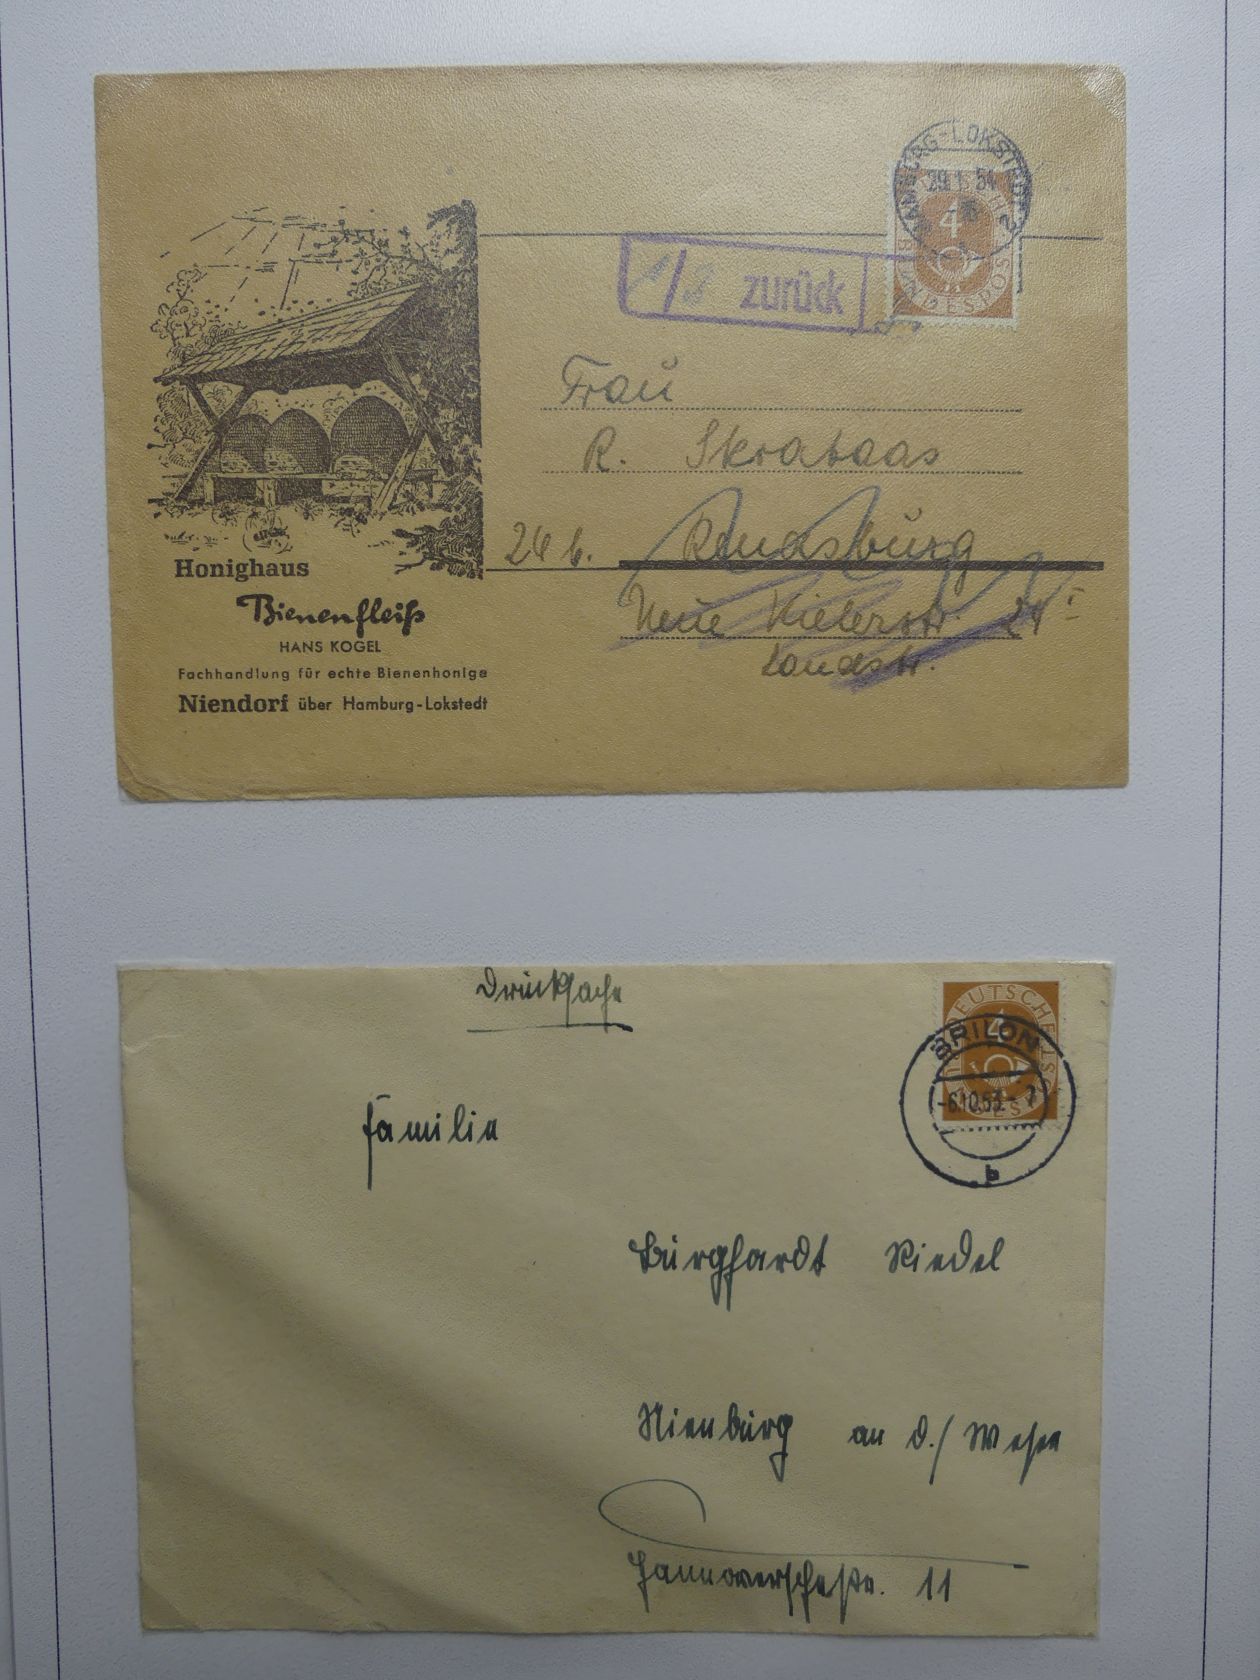 HAMBURG-LOKSTEDT
29.1.54
DEUTSCHE BUNDESPOST
4
zurück
Frau
R. Skrabaas
24 b. Rendsburg
Neue Kielerstr. 24 I
Landstr.
Honighaus
Bienenfleiß
HANS KOGEL
Fachhandlung für echte Bienenhonige
Niendorf über Hamburg-Lokstedt
Drucksache
DEUTSCHE BUNDESPOST
4
BRILON
-6.10.53.- 7
b
Familie
Burghardt Riedel
Nienburg an d./ Weser
Hannoverschestr. 11